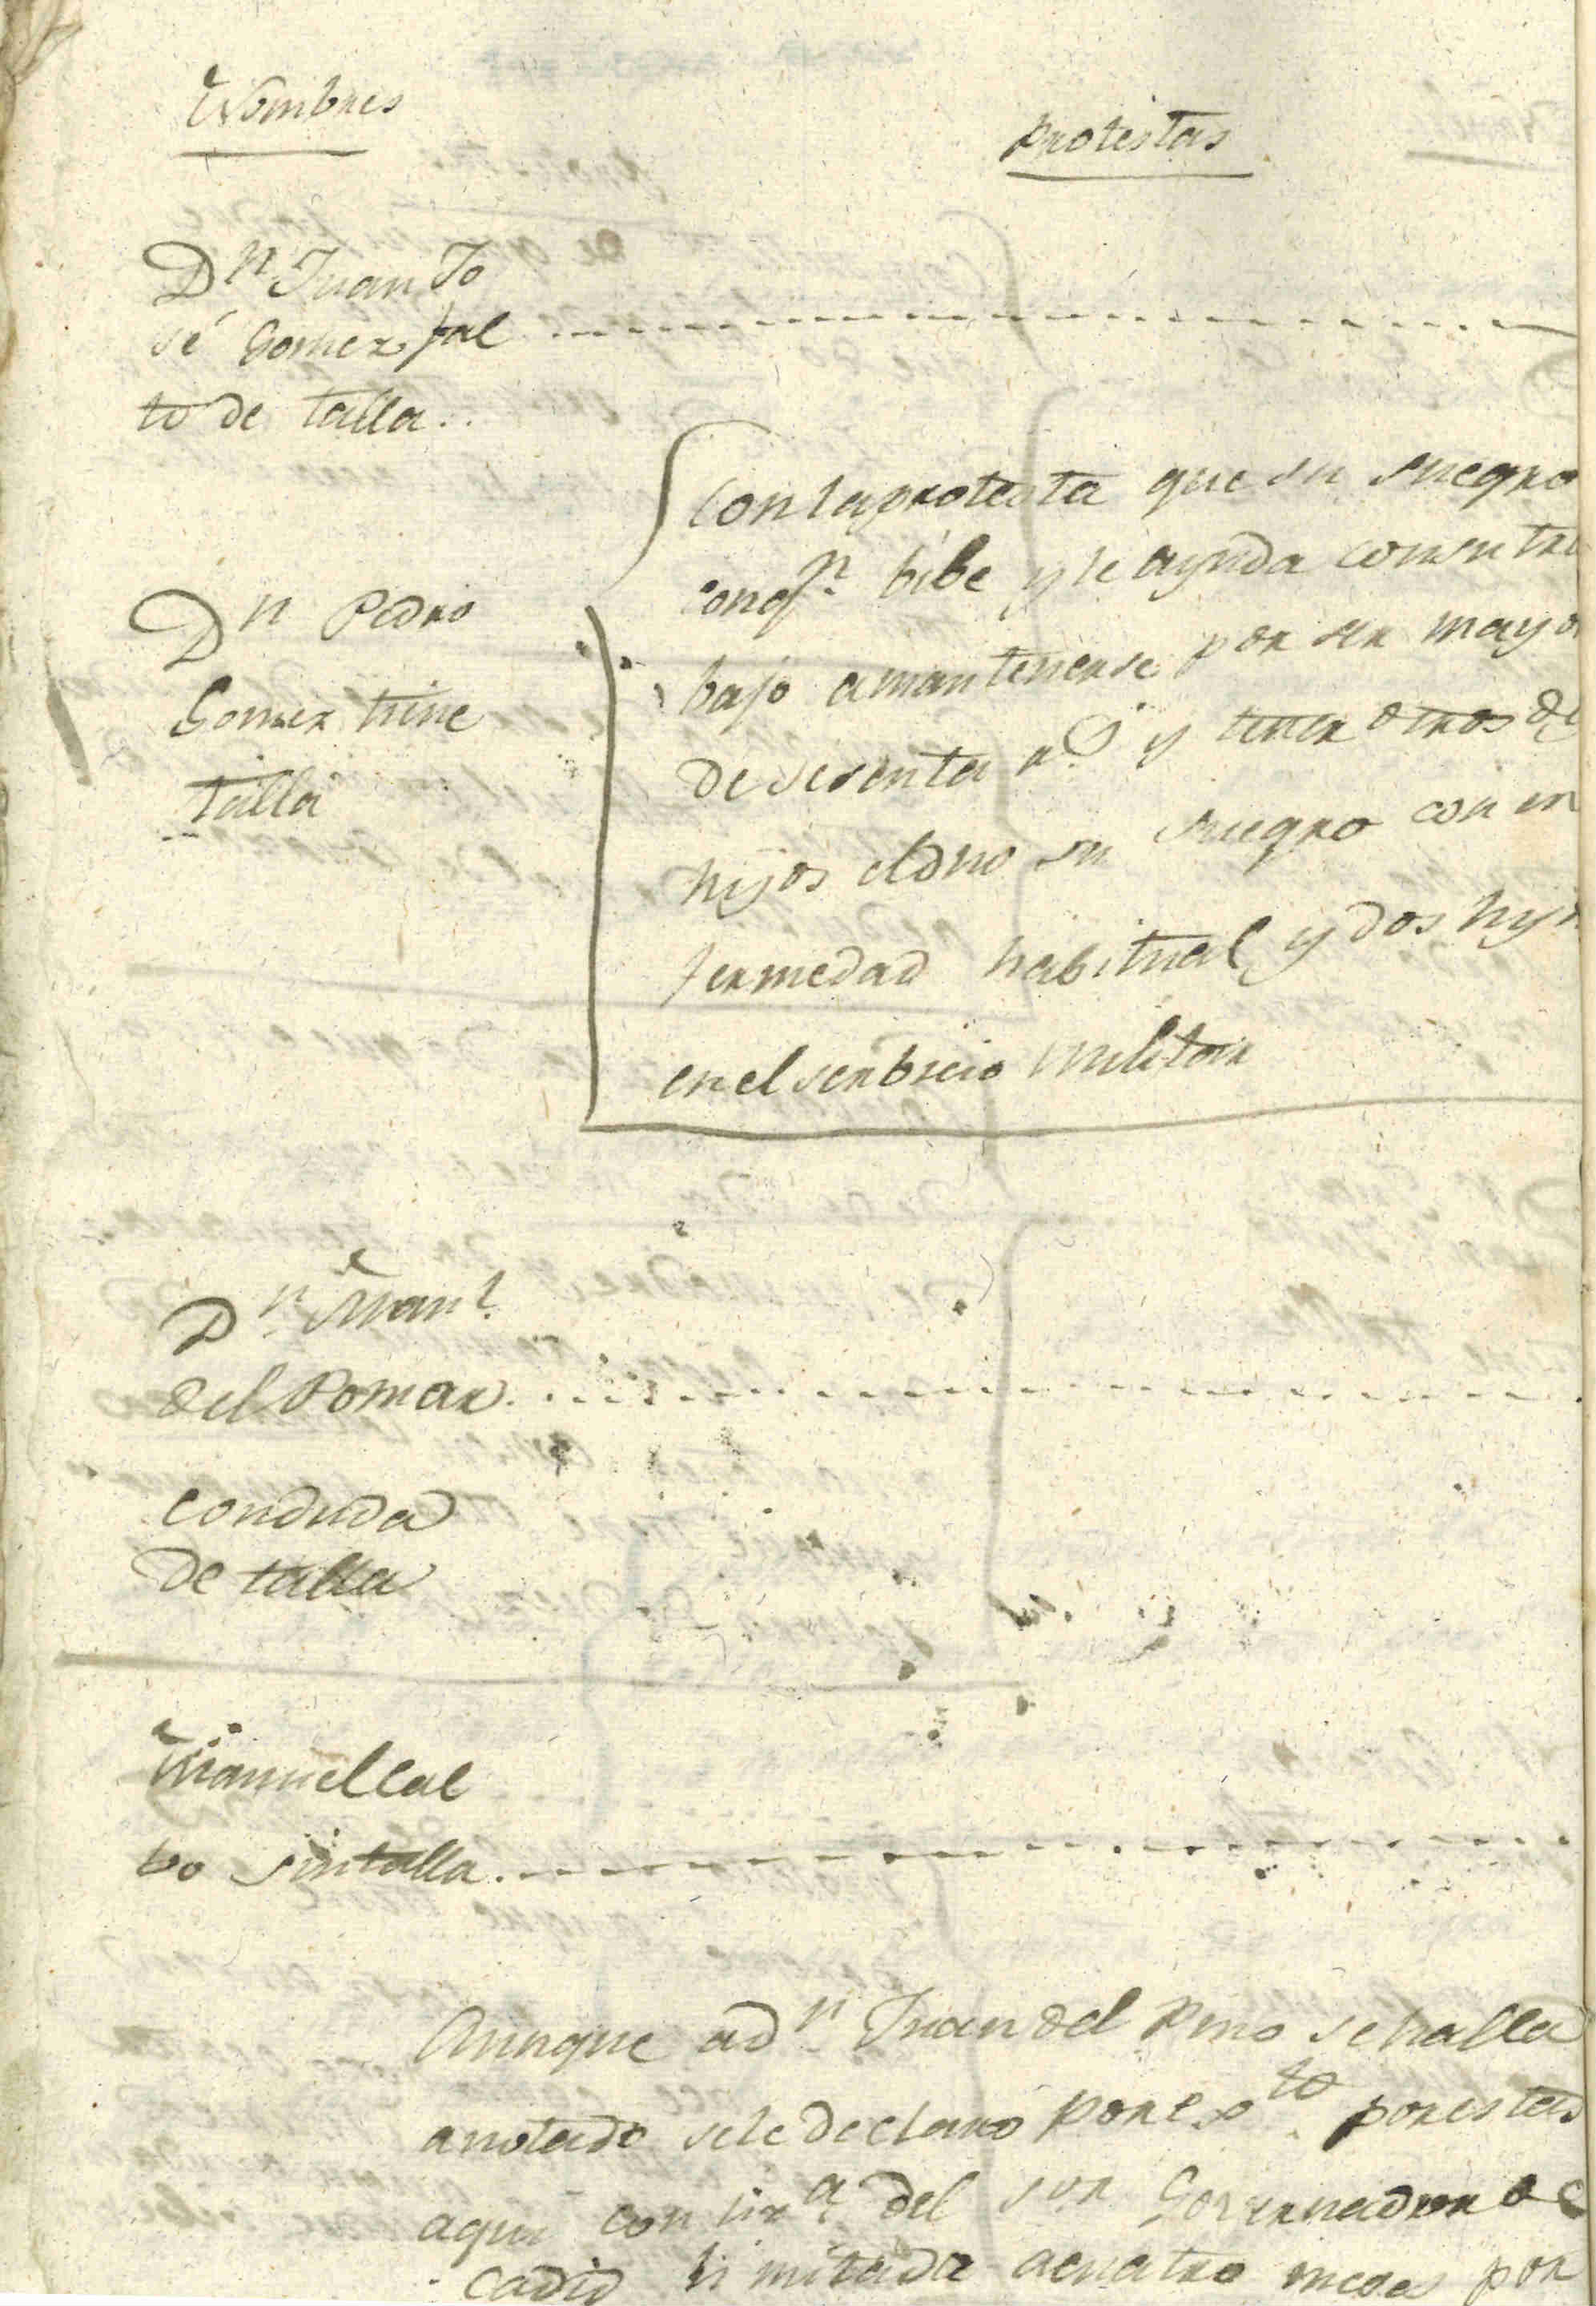 Nombres
protestas
Dn Juan Jo
sé Gomez fal
to de talla..
Con la protesta que su suegro
con qn bibe y le ayuda con su tra
bajo a mantenerse por ser mayo
de sesenta as y tener otros dos
hijos el dho su suegro con en
fermedad habitual y dos hijo
en el serbicio militar
Dn Pedro
Gomez tiene
talla
Dn Manl
del Pomar
con duda
de talla
Manuel Cal
bo sin talla
Aunque a dn Juan del Pino se halla
anotado se le declaro por exto por estar
aqui con liza del sor Governador de
Cadiz limitada a cuatro meses por